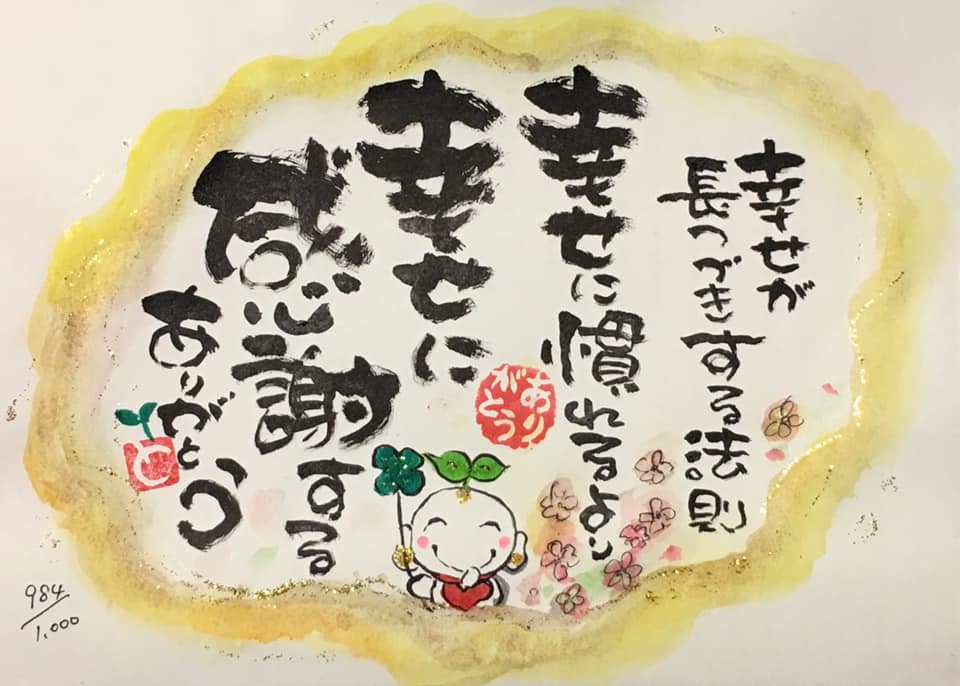 幸せが
長つづきする法則
幸せに慣れるより
幸せに
感謝する
ありがとう
ありがとう
と
984/1,000